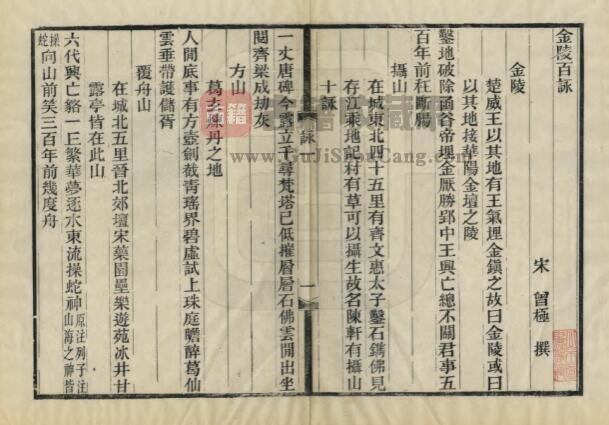 金陵百詠
宋　曾極　撰
金陵
楚威王以其地有王氣埋金鎮之故曰金陵或曰
以其地接華陽金壇之陵
鑿地破除函谷帝埋金厭勝郢中王興亡總不關君事五
百年前枉斷腸
攝山
在城東北四十五里有齊文惠太子鑿石鐫佛見
存江乘地記村有草可以攝生故名陳軒有攝山
十詠
詠
一
一丈唐碑今露立千尋梵塔已低摧層層石佛雲間出坐
閱齊梁成劫灰
方山
葛玄煉丹之地
人間底事有方壺劖截青瑤界碧虛試上珠庭瞻醉葛仙
雲垂帶護儲胥
覆舟山
在城北五里晉北郊壇宋藥園壘樂遊苑冰井甘
露亭皆在此山
六代興亡貉一丘繁華夢逐水東流操蛇神原注列子注山海之神皆
操蛇向山前笑三百年前幾度舟
古籍
www.GuJiShuCang.com